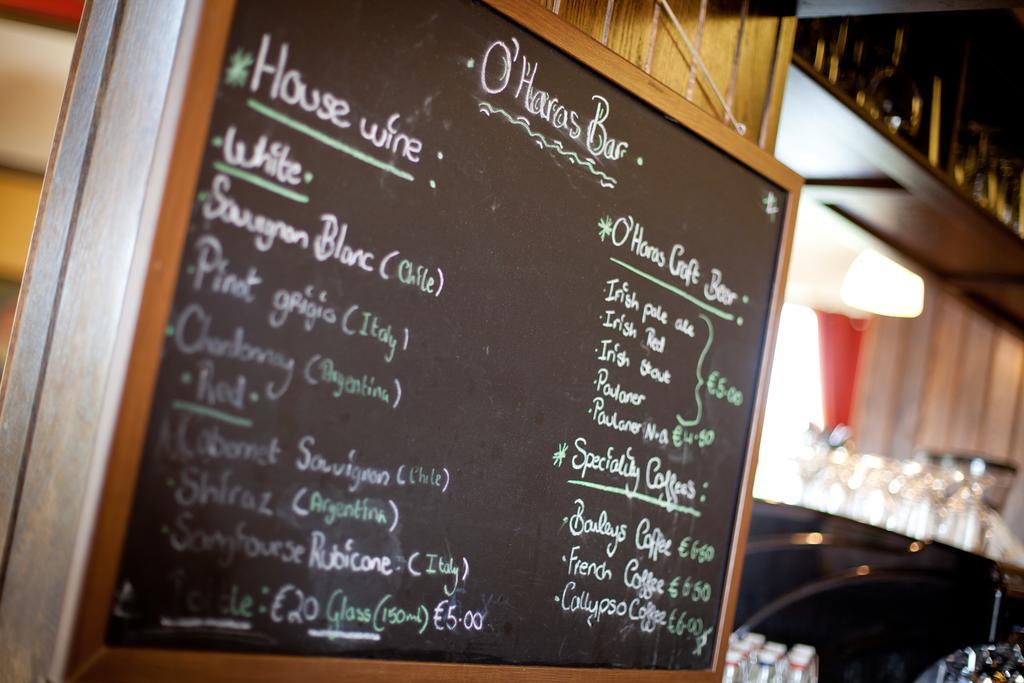 O'Haras Bar.
* House wine :
White.
Sauvignon Blanc (Chile)
Pinot grigio (Italy)
Chardonnay (Argentina)
Red.
Cabernet Sauvignon (Chile)
Shiraz (Argentina)
Rubicone (Italy)
€20 Glass (150ml) €5.00
* O'Haras Craft Beer :
· Irish pale ale
· Irish Red
· Irish stout
· Paulaner
€5.00
· Paulaner N.A €4.50
* Speciality Coffees :
· Baileys Coffee €6.50
· French Coffee €6.50
· Callypso Coffee